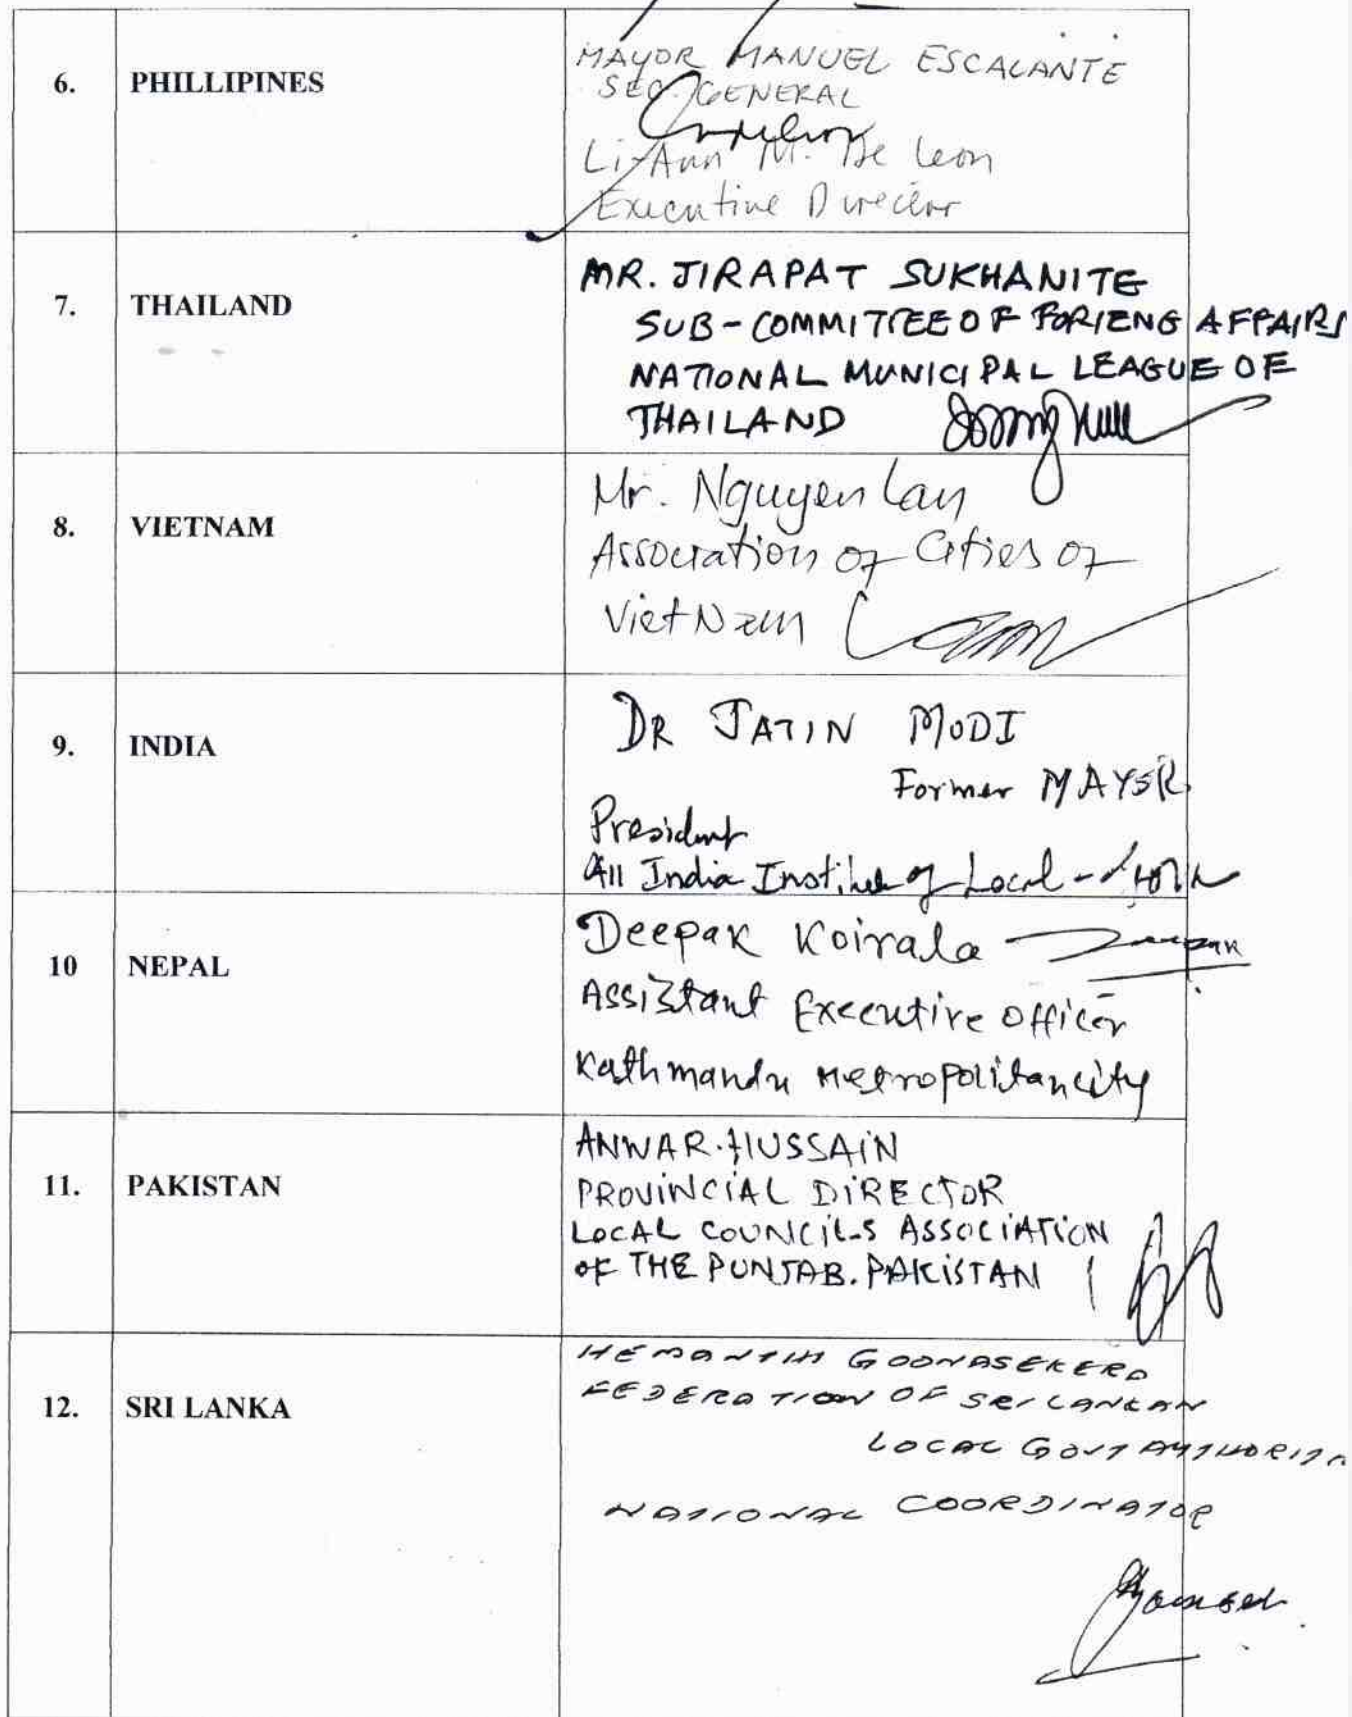 6. PHILLIPINES
MAYOR MANUEL ESCALANTE
SEC. GENERAL
Li-Ann M. De Leon
Executive Director
7. THAILAND
MR. JIRAPAT SUKHANITE
SUB-COMMITTEE OF FORIENG AFFAIRS
NATIONAL MUNICIPAL LEAGUE OF
THAILAND
8. VIETNAM
Mr. Nguyen Lan
Association of Cities of
VietNam
9. INDIA
DR JATIN MODI
Former MAYOR
President
All India Institute of Local
10 NEPAL
Deepak Koirala
Assistant Executive Officer
Kathmandu Metropolitan city
11. PAKISTAN
ANWAR.HUSSAIN
PROVINCIAL DIRECTOR
LOCAL COUNCILS ASSOCIATION
OF THE PUNJAB. PAKISTAN
12. SRI LANKA
HEMANTHI GOONASEKERA
FEDERATION OF SRI LANKAN
LOCAL GOVT
NATIONAL COORDINATOR